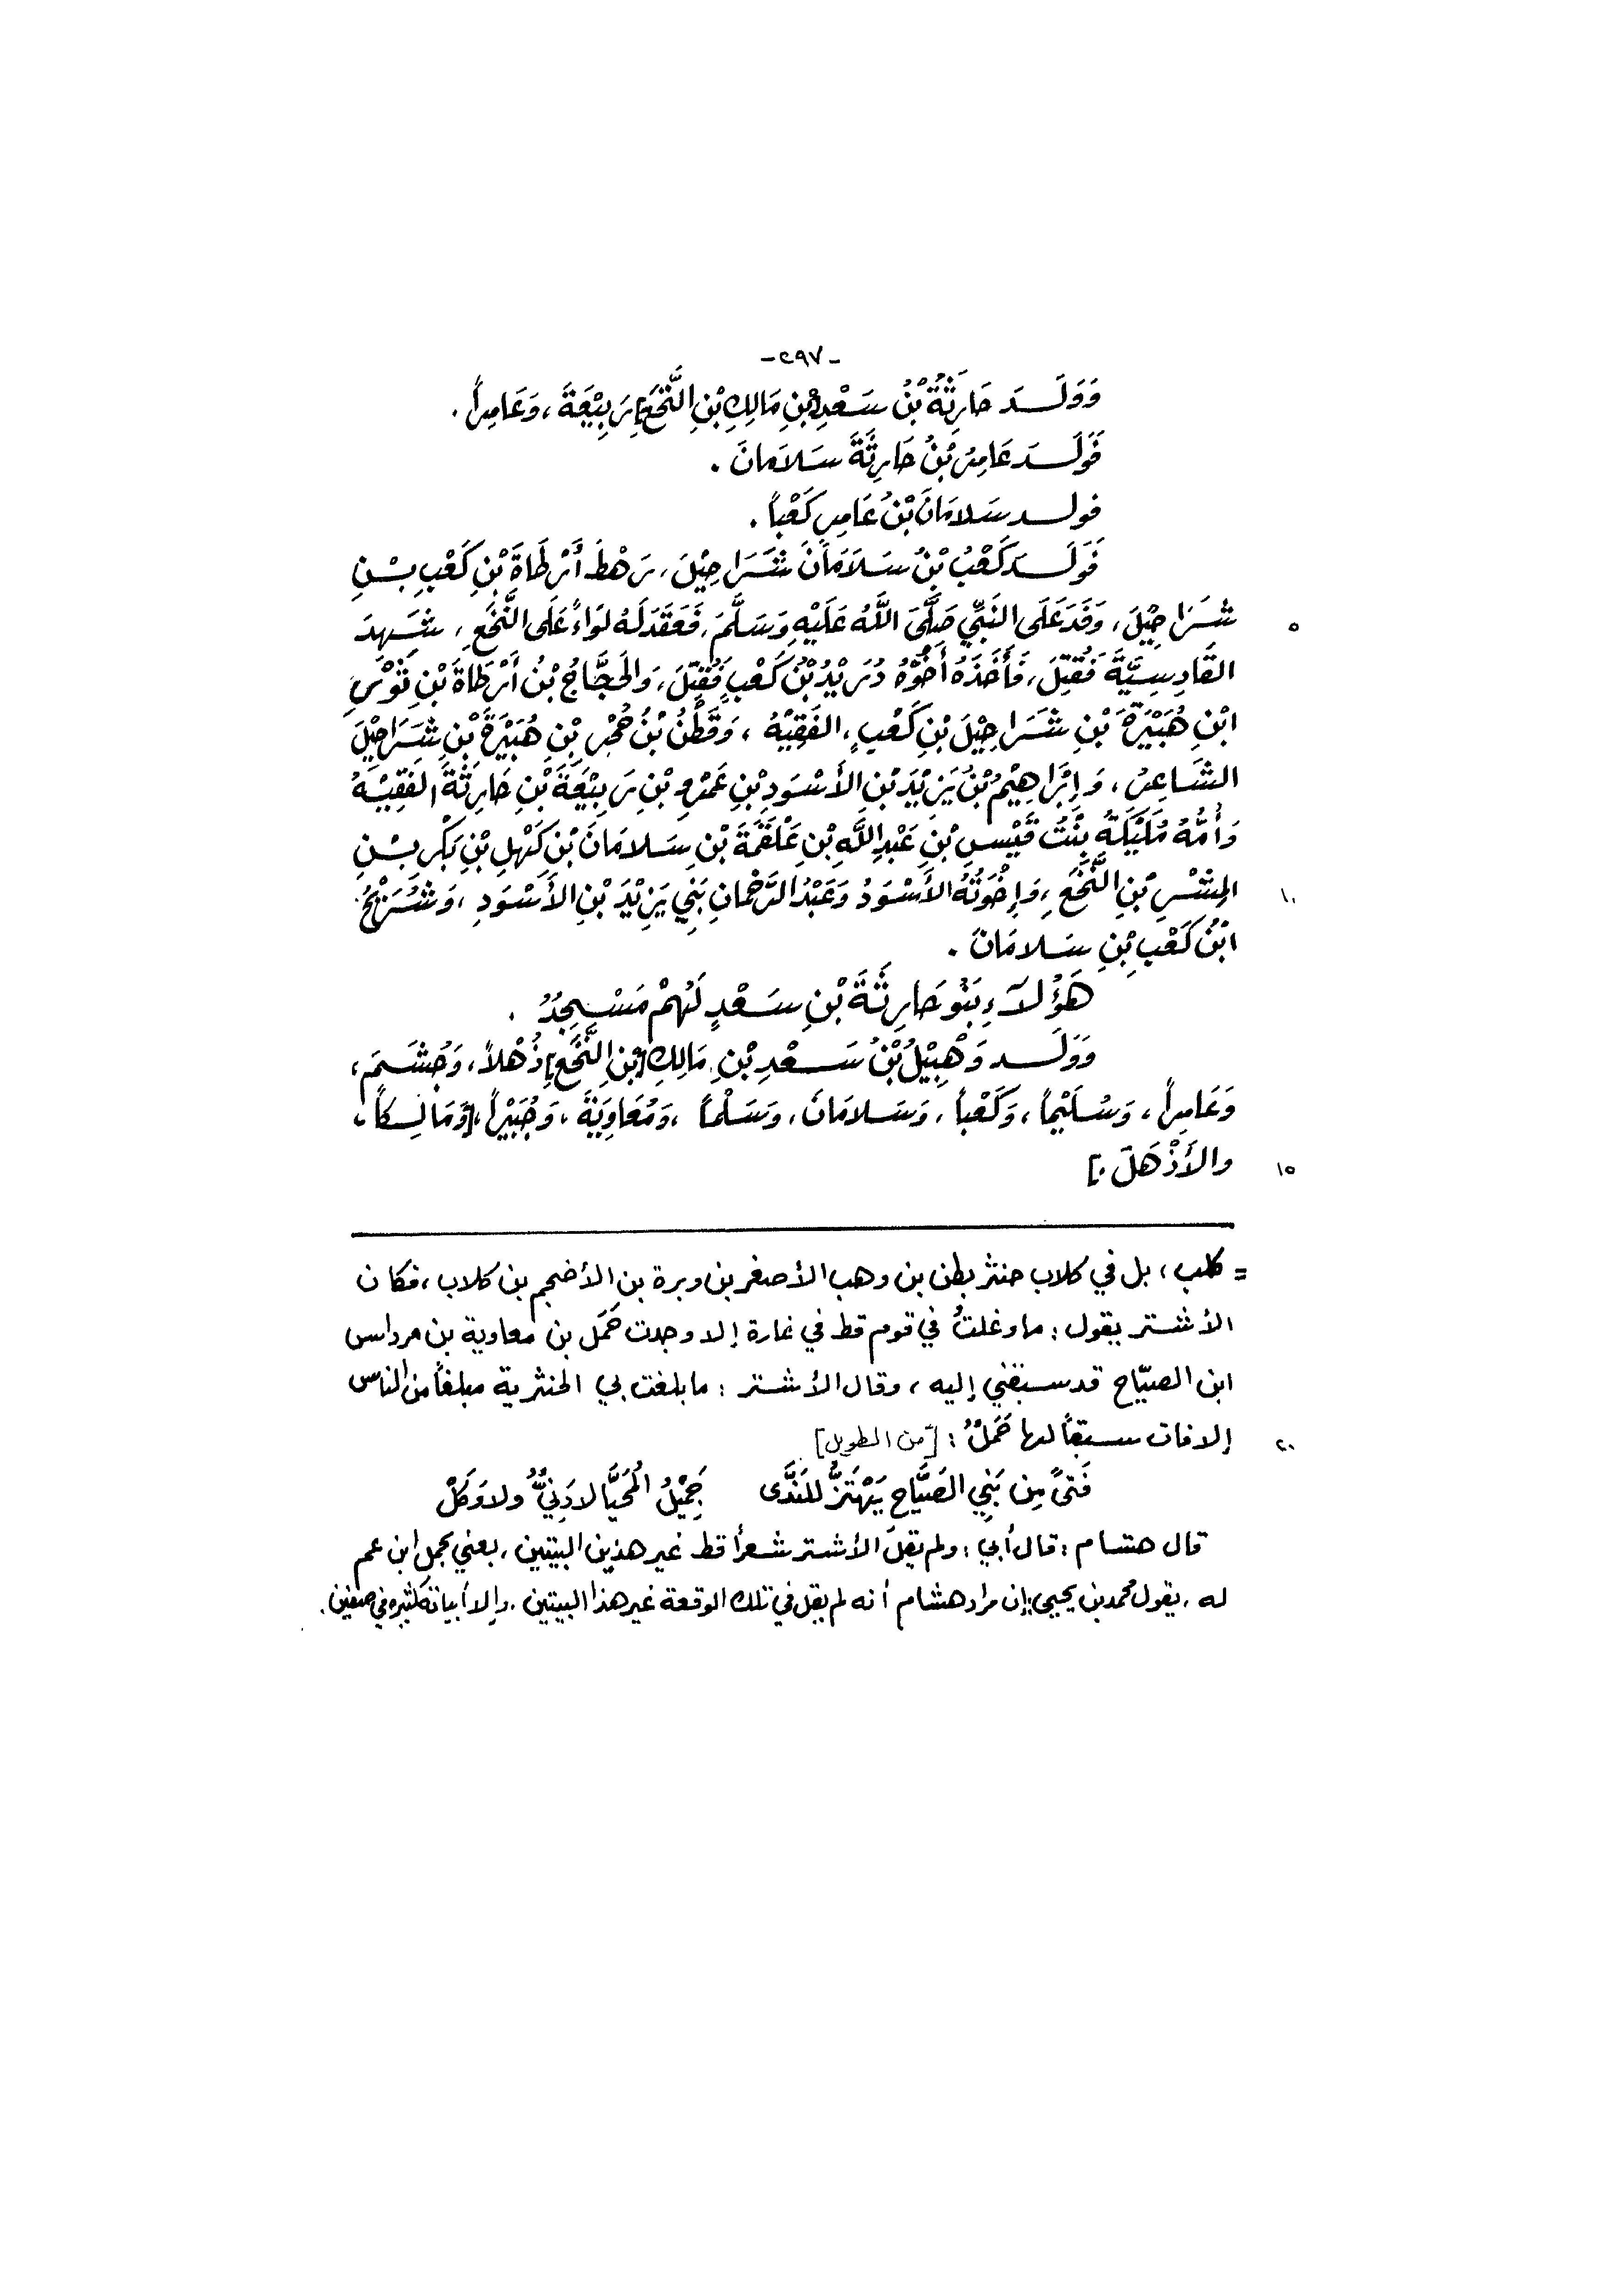 -٢٩٧-
وَوَلَـدَ حَارِثَةُ بْنُ سَعْدِ [بْنِ مَالِكِ بْنِ النَّخَعِ] رَبِيْعَةَ، وَعَامِراً.
فَوَلَـدَ عَامِرُ بْنُ حَارِثَةَ سَلَامَانَ.
فولـد سَلامَانَ بْنُ عَامِرٍ كَعْباً.
فَوَلَـدَ كَعْبُ بْنُ سَلَامَانَ شَرَاحِيْلَ، رَهْطَ أَرْطَاةَ بْنِ كَعْبِ بْـنِ
٥ شَرَاحِيْلَ، وَفَدَ عَلَى النَّبِيِّ صَلَّى اللَّهُ عَلَيْهِ وَسَلَّمَ، فَعَقَدَ لَهُ لوَاءً عَلَى النَّخَعِ، شَهِدَ
القَادِسِيَّةَ فَقُتِلَ، فَأَخَذَهُ أَخُوْهُ دُرَيْدُ بْنُ كَعْبٍ فَقُتِلَ، وَالحَجَّاجُ بْنُ أَرْطَاةَ بْنِ ثَوْرِ
ابْنِ هُبَيْرَةَ بْنِ شَرَاحِيْلَ بْنِ كَعْبٍ، الفَقِيْهُ، وَقَطَنُ بْنُ حُجْرِ بْنِ هُبَيْرَةَ بْنِ شَرَاحِيْلَ
الشَّاعِرُ، وَإِبْرَاهِيْمُ بْنُ يَزِيْدَ بْنِ الأَسْوَدِ بْنِ عَمْرِو بْنِ رَبِيْعَةَ بْنِ حَارِثَةَ الفَقِيْـهُ
وَأُمُّهُ مُلَيْكَةُ بِنْتُ قَيْسِ بْنِ عَبْدِ اللَّهِ بْنِ عَلْقَمَةَ بْنِ سَلامَانَ بْنِ كَهْلِ بْنِ بَكْرِ بْـنِ
١٠ المِنْشَرِ بْنِ النَّخَعِ، وَإِخْوَتُهُ الأَسْوَدُ وَعَبْدُ الرَّحْمَانِ بَنِي يَزِيْدَ بْنِ الأَسْوَدِ، وَشُرَيْحُ
ابْنُ كَعْبِ بْنِ سَلامَانَ.
هَؤُلَاءِ بَنُو حَارِثَةَ بْنِ سَعْدٍ لَهُمْ مَسْجِدٌ.
وَوَلَـد وَهْبِيْلُ بْنُ سَـعْدِ بْنِ مَالِكِ [بْنِ النَّخَعِ] ذُهْلاً، وَجُشَـمَ،
وَعَامِراً، وَسُلَيْماً، وَكَعْباً، وَسَلامَانَ، وَسَلْماً، وَمُعَاوِيَةَ، وَجُبَيْراً، [وَمَالِكاً،
١٥ والأَذْهَلَ.]
= كلب، بل في كلاب حنثر بطن بن وهب الأصغر بن وبرة بن الأضجم بن كلاب، فكان
الأشتر يقول: ما وغلتُ في قوم قط في غارة إلا وجدت حَمَل بن معاوية بن مرداس
ابن الصيّاح قد سبقني إليه، وقال الأشتر: ما بلغت بي الحنثرية مبلغاً من الناس
٢٠ إلا فات سبقاً لها حَمَلٌ: [من الطويل]
فَتىً مِن بَنِي الصَّيَّاحِ يَهْتَزُّ للنَدَّى   جَمِيْلُ المُحَيَّا لا دَنِيٌّ ولا وَكَلْ
قال هشام: قال أبي: ولم يقل الأشتر شعراً قط غير هذين البيتين، يعني بحمل ابن عم
له. يقول محمد بن يحيى: إن مراد هشام أنه لم يقل في تلك الوقعة غير هذا البيتين. وإلا أبياته كثيره في صفين.